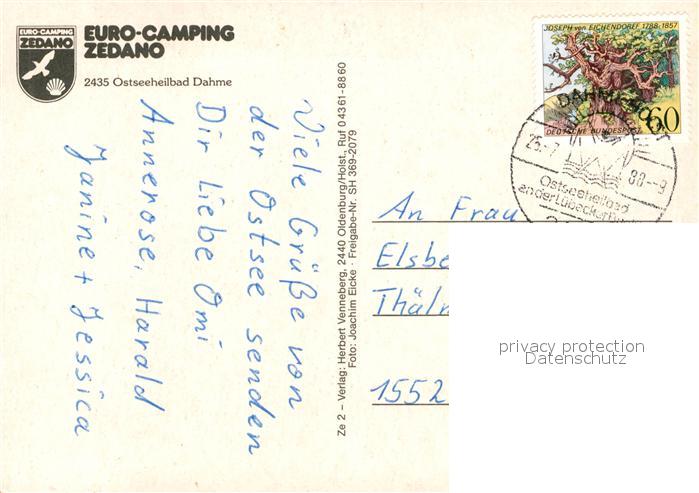 EURO-CAMPING
ZEDANO
EURO-CAMPING
ZEDANO
2435 Ostseeheilbad Dahme
Viele Grüße von
der Ostsee senden
Dir Liebe Omi
Annerose, Harald
Janine + Jessica
Ze 2 – Verlag: Herbert Venneberg, 2440 Oldenburg/Holst., Ruf 04361-8860
Foto: Joachim Eicke · Freigabe-Nr. SH 369-2079
JOSEPH von EICHENDORFF 1788-1857
DEUTSCHE BUNDESPOST 60
DAHME
25.-7. 88.--9
Ostseeheilbad
an der Lübecker
An Frau
Elsbe
Thäl
1552
privacy protection
Datenschutz